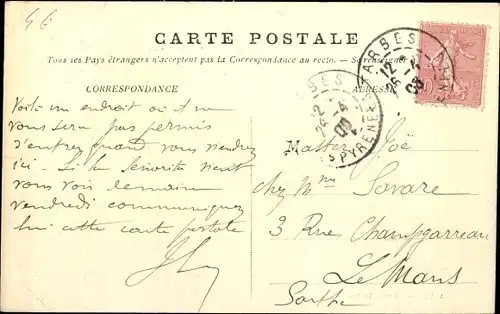 46
CARTE POSTALE
Tous les Pays étrangers n'acceptent pas la Correspondance au recto. — Se renseigner
CORRESPONDANCE
Voilà un endroit où il ne
vous sera pas permis
d'entrer quand vous viendrez
ici. Si la Señorita vient
vous voir demain
vendredi communiquez
lui cette carte postale
ADRESSE
Master
chez Mme Savare
3 Rue Champgarreau
Le Mans
Sarthe
TARBES
12
26
PYRENEES
10